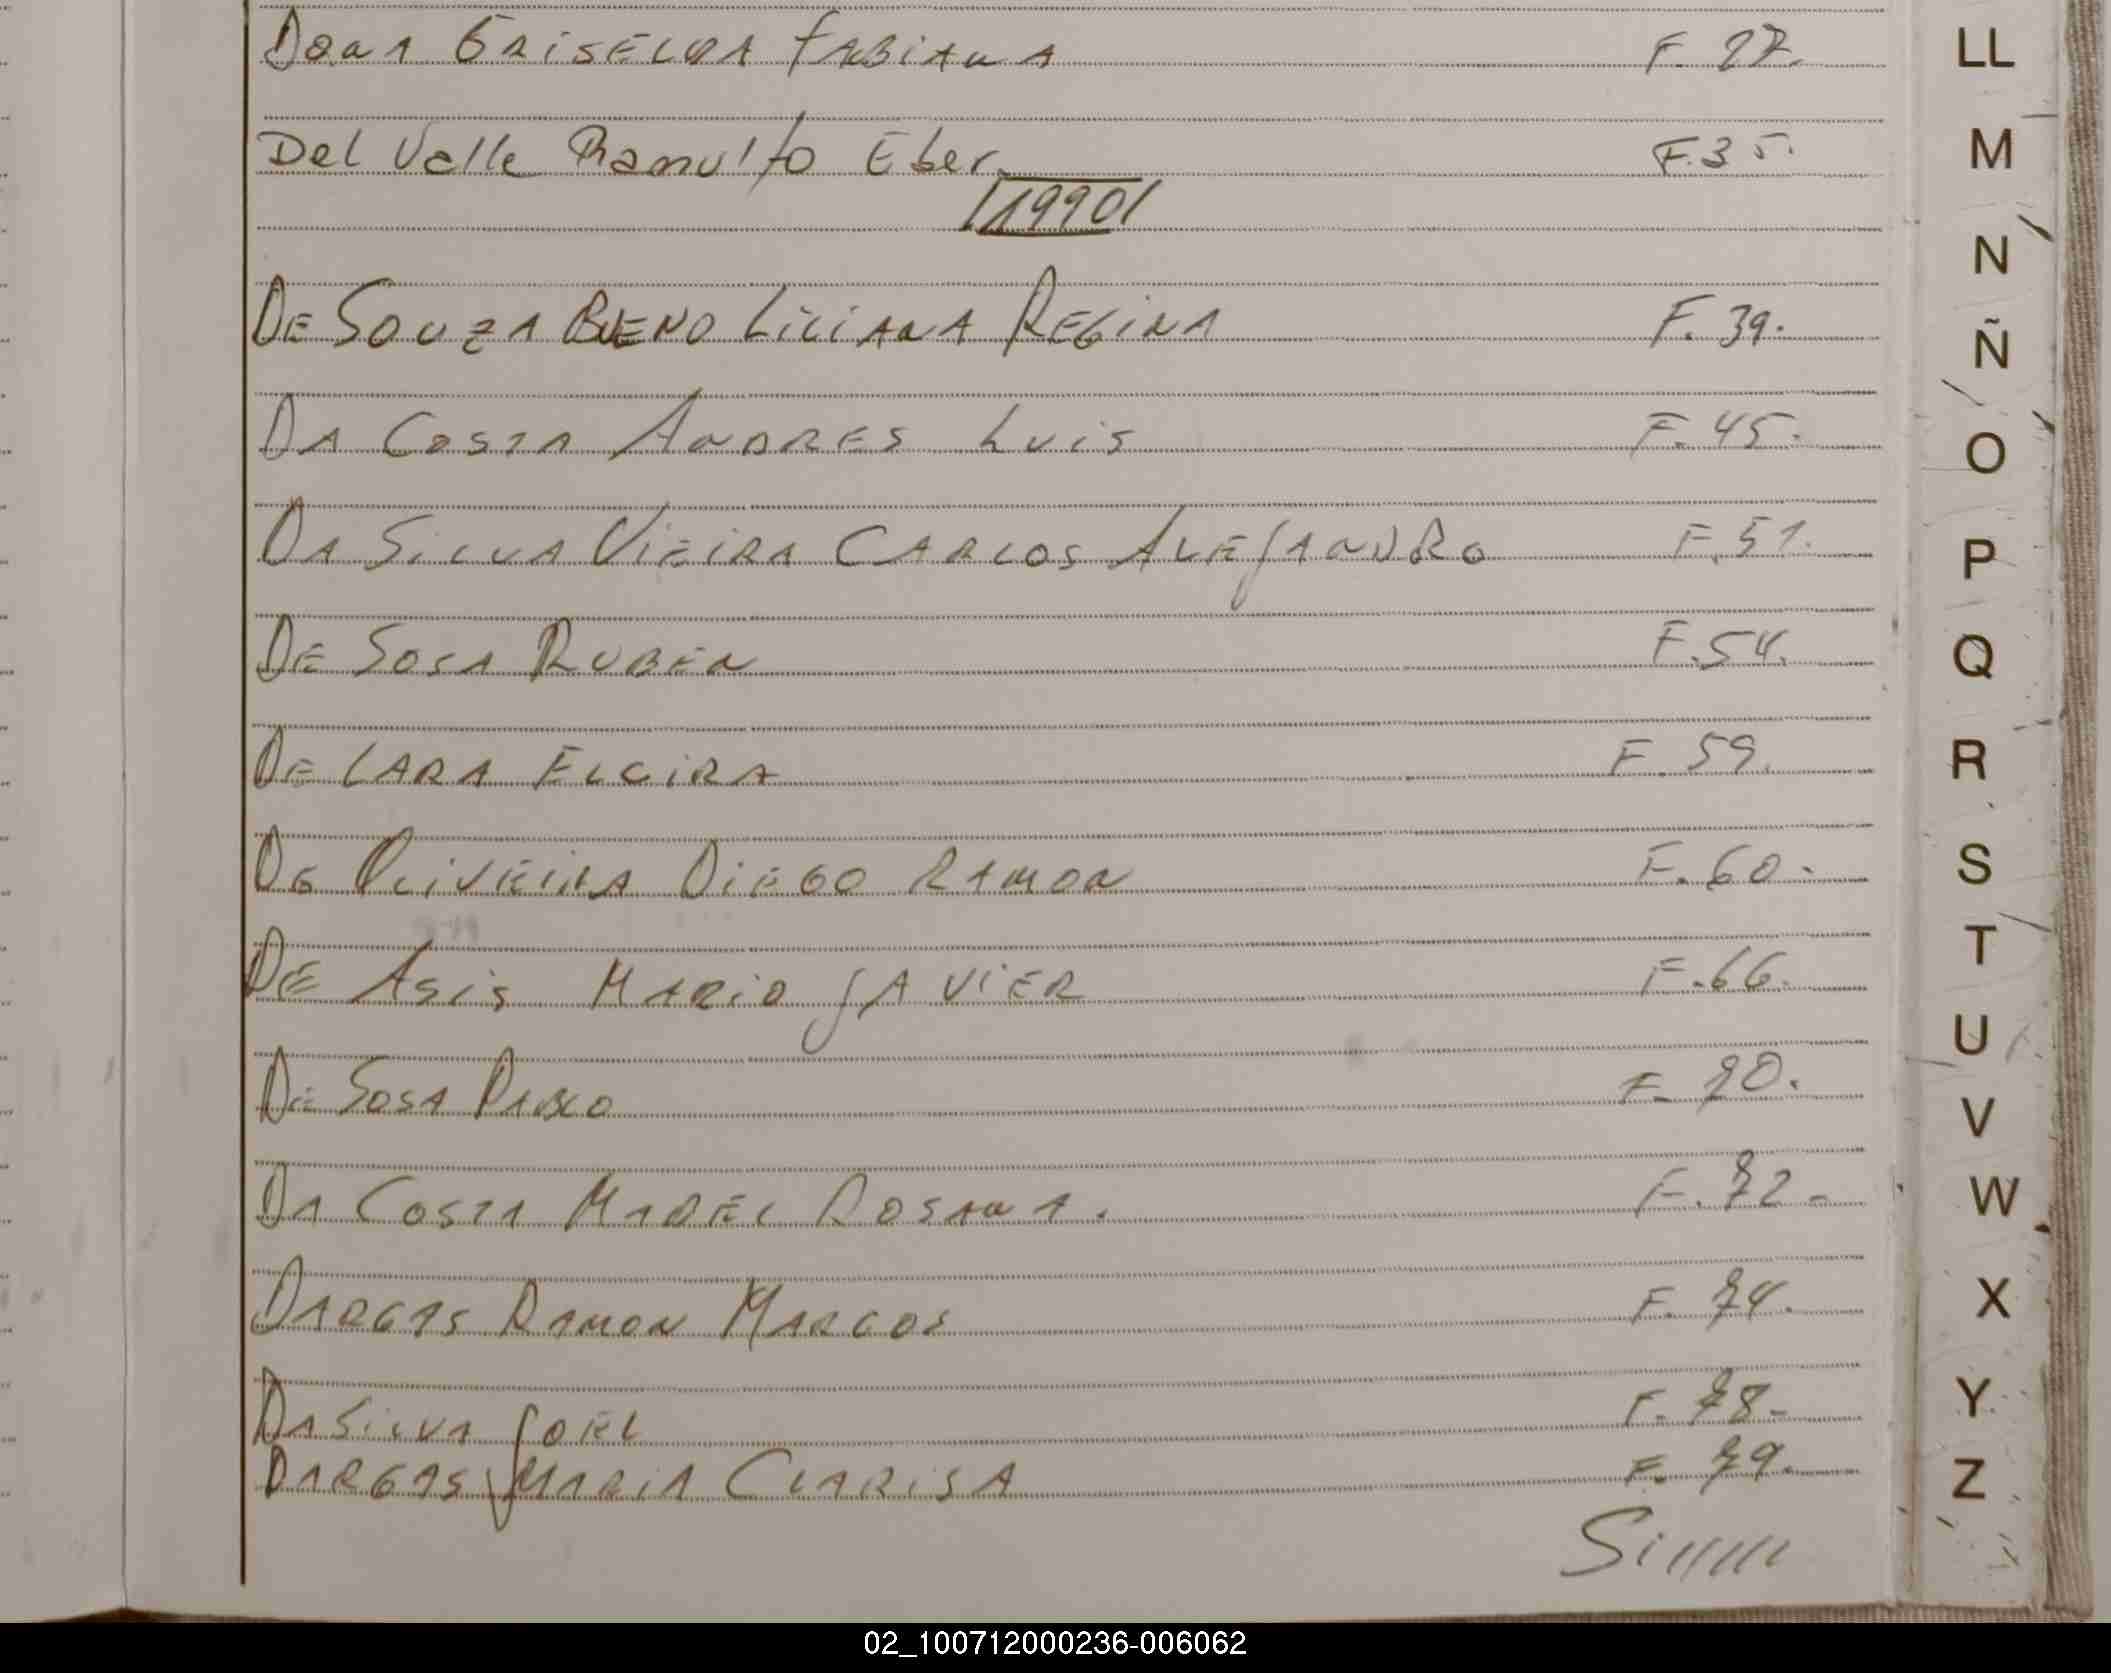 Dona GRISELDA FABIANA F. 27.
Del Valle Ranulfo Eber. F. 35.
/1990/
DE SOUZA BUENO LILIANA REGINA F. 39.
DA COSTA ANDRES LUIS F. 45.
DA SILVA VIEIRA CARLOS ALEJANDRO F. 51.
DE SOSA RUBEN F. 54.
DE LARA ELCIRA F. 59.
DE OLIVEIRA DIEGO RAMON F. 60.-
DE ASIS MARIO JAVIER F. 66.
DE SOSA PABLO F. 70.
DA COSTA MABEL ROSANA. F. 72-
DARGAS RAMON MARCOS F. 74.
DA SILVA JOEL F. 78-
DARGAS MARIA CLARISA F. 79.
Si//////
LL
M
N
Ñ
O
P
Q
R
S
T
U
V
W
X
Y
Z
02_100712000236-006062